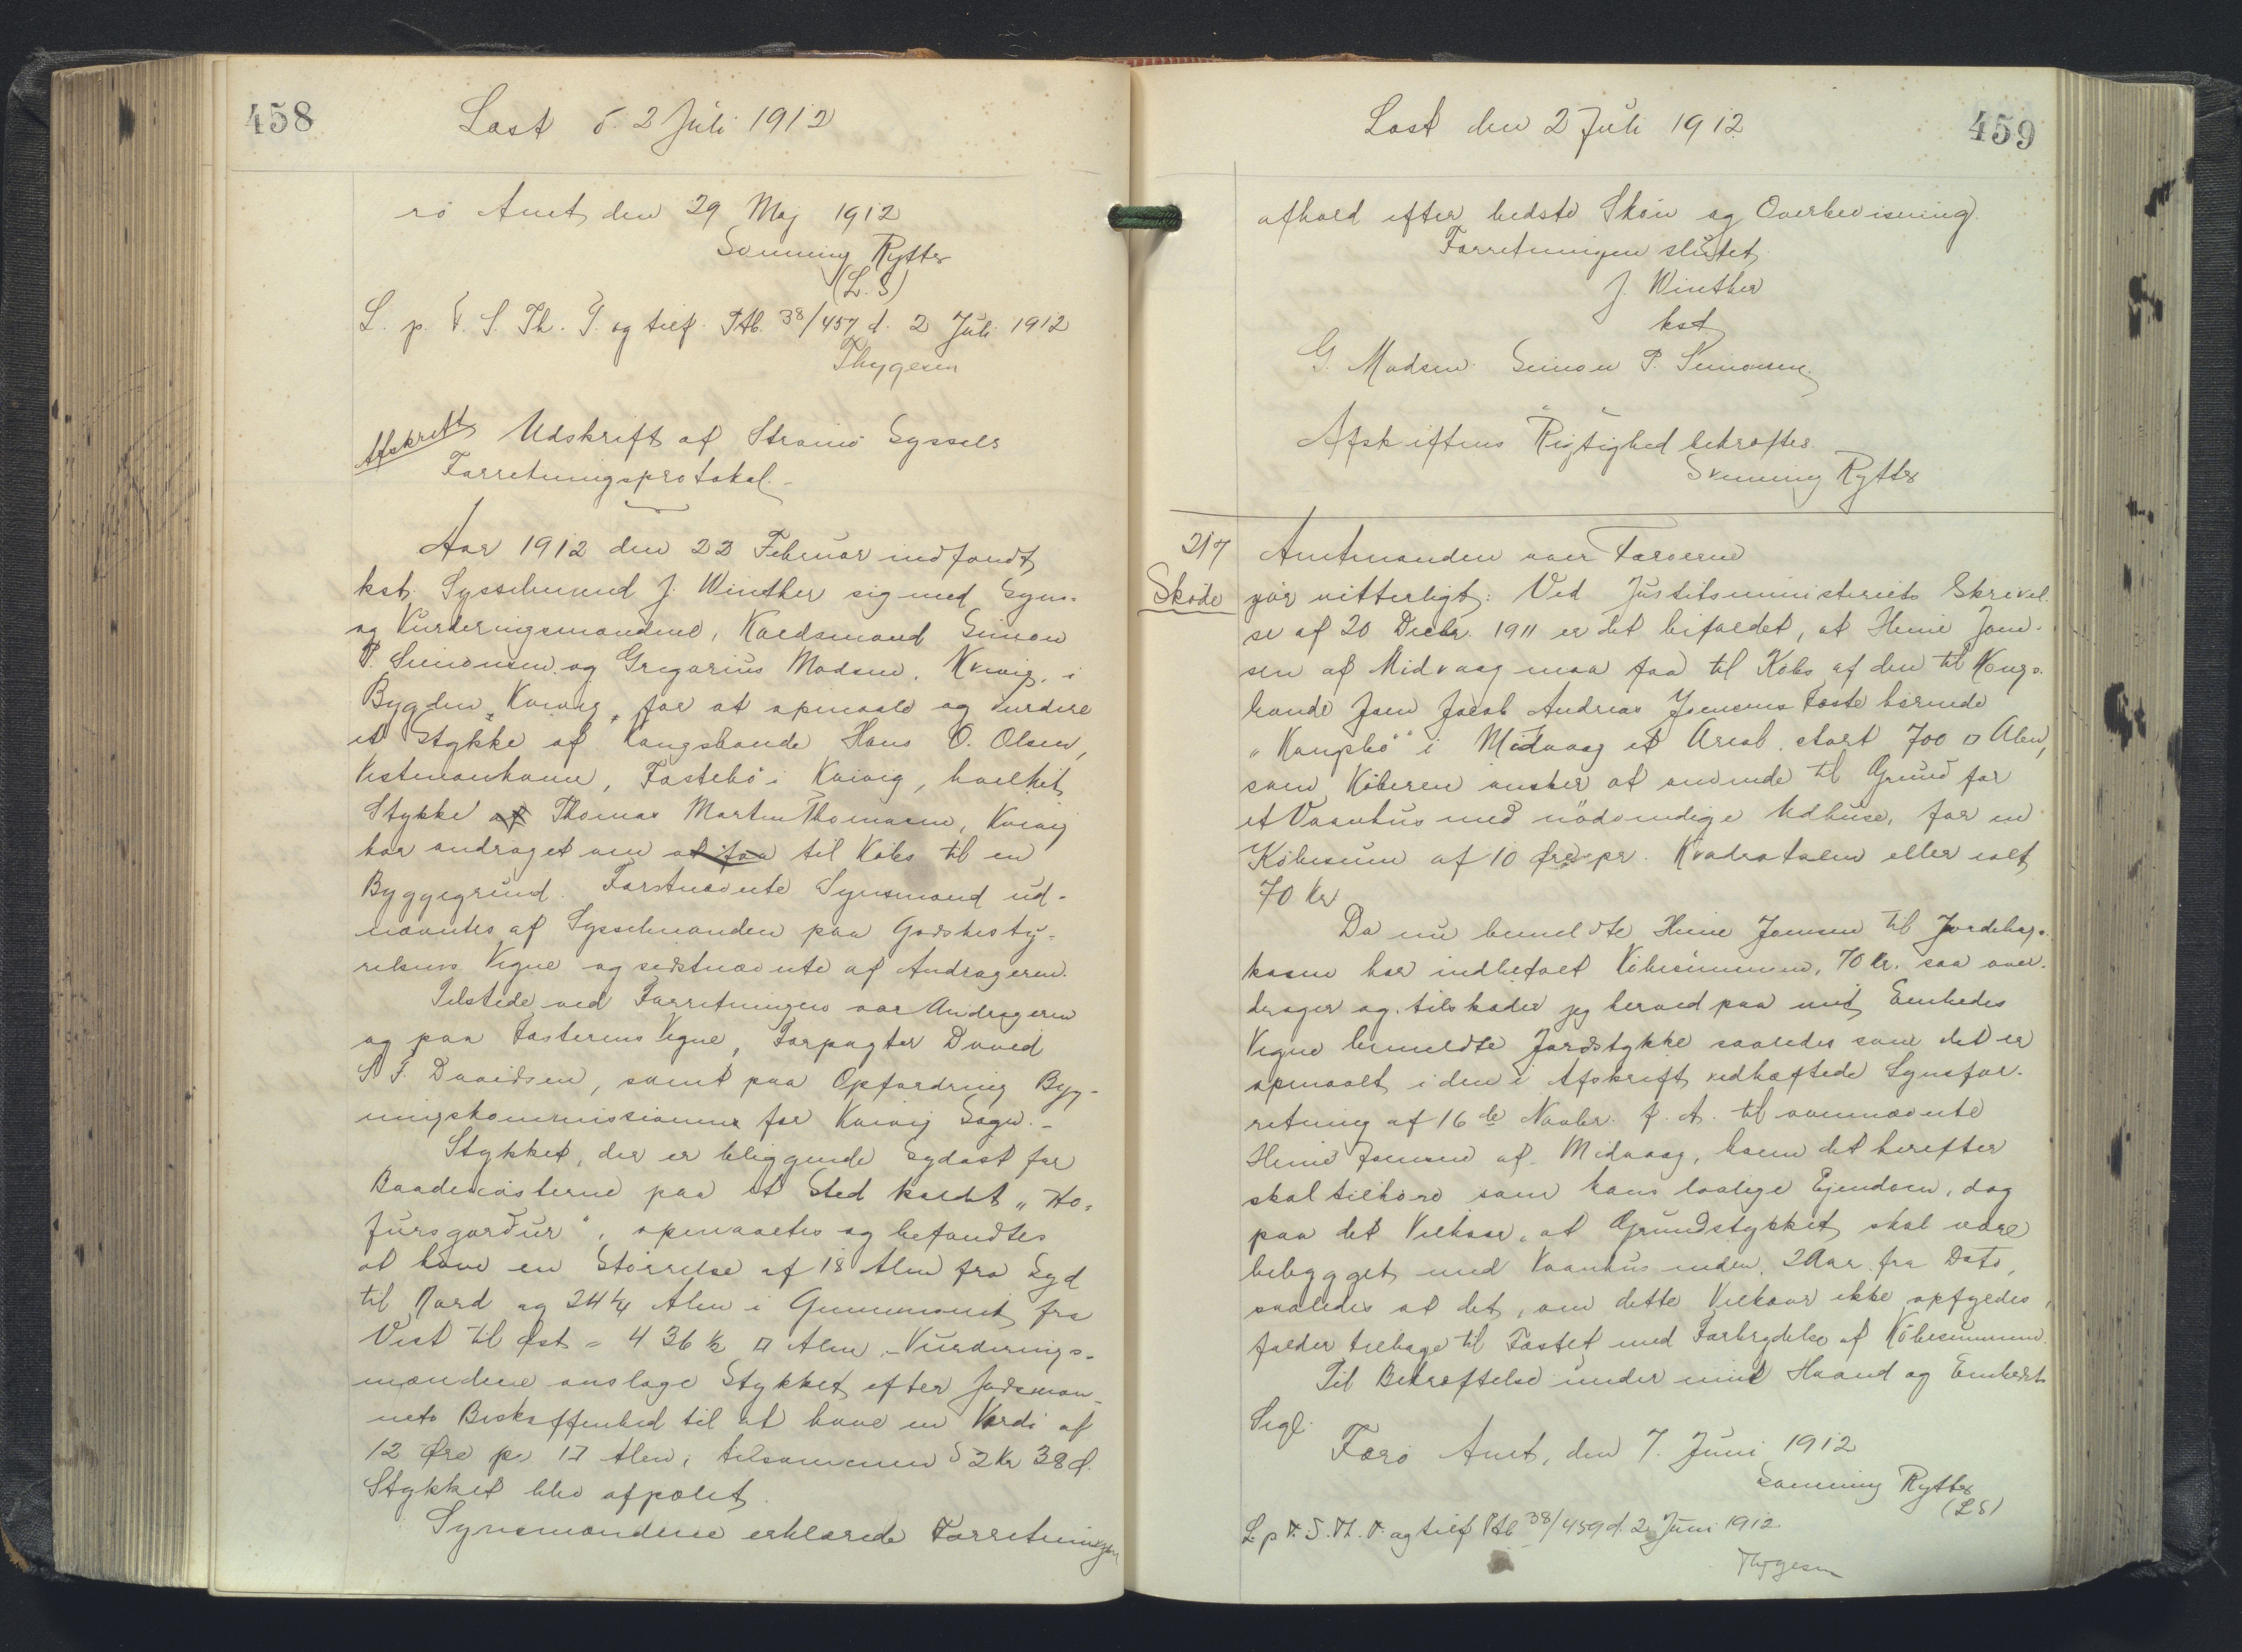 458
Læst d. 2 Juli 1912
rö Amt, den 29 Maj 1912
Svenning Rytter
(L. S)
L. p. F. S. Th. T. og tilf. Ptb. 38/457 d. 2 Juli 1912
Thygesen
Afskrift
Udskrift af Strømö Syssels
Forretningsprotokol.-
Aar 1912 den 22 Februar indfandt
kst. Sysselmand J. Winther sig med Syns-
og Vurderingsmændene, Kvedsmand Simon
P. Simonsen og Gregorius Madsen, Kvivig, i
Bygden "Kvivig" for at opmaale og vurdere
et Stykke af Kongsbonde Hans O. Olsen,
Vestmanhavn, Fæstebö i Kvivig, hvilket
Stykke af Thomas Martin Thomasen, Kvivig
har andraget om at faa til Købs til en
Byggegrund. Førstnævnte Synsmand ud-
nævntes af Sysselmanden paa Godsbesty-
relsens Vegne og sidstnævnte af Andrageren.
Tilstede ved Forretningen var Andrageren
og paa Fæsterens Vegne, Forpagter David
S F. Davidsen, samt paa Opfordring Byg-
ningskommissionen for Kvivig Sogn.-
Stykket, der er beliggende Sydøst for
Baadenösterne paa et Sted kaldet "Ho-
fursgarður", opmaaltes og befandtes
at have en Störrelse af 18 Alen fra Syd
til Nord og 24¼ Alen i Gennemsnit fra
Vest til Øst = 436½ □ Alen.- Vurderings-
mændene anslage Stykket efter Jordsmon-
nets Beskaffenhed til at have en Værdi af
12 Øre pr □ Alen, tilsammen 52 Kr 38 Ø.
Stykket blev afpælet.
Synsmændene erklærede Forretningen
459
Læst den 2 Juli 1912
afhold efter bedste Skøn og Overbevisning.
Forretningen sluttet
J. Winther
kst
G. Madsen Simon P. Simonsen.
Afskriftens Rigtighed bekræftes.
Svenning Rytter
2/7
Skøde
Amtmanden over Færøerne
gör vitterligt: Ved Justitsministeriets Skrivel-
se af 20 Decbr. 1911 er det bifaldet, at Heine Joen-
sen af Midvaag maa faa til Købs af den til Kongs-
bonde Joen Jacob Andreas Joensens Fæste hørende
"Kampbö" i Midvaag et Areal, stort 700 □ Alen,
som Köberen ønsker at anvende til Grund for
et Vaanhus med nödvendige Udhuse, for en
Köbesum af 10 Øre pr. Kvadratalen eller ialt
70 Kr
Da nu bemeldte Heine Joensen til Jordebogs-
kassen har indbetalt Köbesummen, 70 Kr. saa over-
drager og tilskøder jeg herved paa mit Embedes
Vegne bemeldte Jordstykke saaledes som det er
opmaalt i den i Afskrift vedhæftede Synsfor-
retning af 16de Novbr. f. A. til ovennævnte
Heine Joensen af Midvaag, hvem det herefter
skal tilhøre som hans lovlige Ejendom, dog
paa det Vilkaar, at Grundstykket skal være
bebygget med Vaanhus inden 2 Aar fra Dato,
saaledes at det, om dette Vilkaar ikke opfyldes,
falder tilbage til Fæstet med Fortabelse af Köbesummen.
Til Bekræftelse under min Haand og Embeds
Segl.
Færö Amt, den 7. Juni 1912
Svenning Rytter
(LS)
L. p F. S. Th. T. og tilf Ptb 38/459 d. 2 Juni 1912
Thygesen